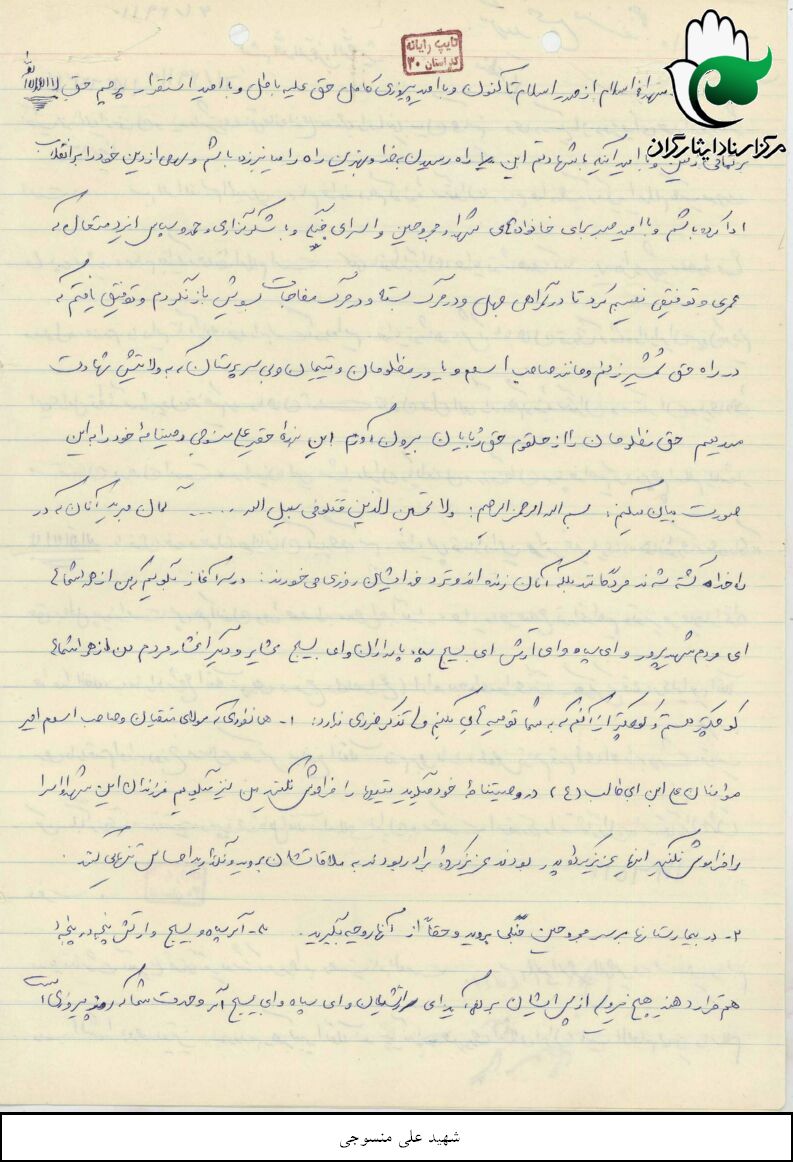 تایپ رایانه
گلستان ۳۰
مرکز اسناد ایثارگران
شهدای اسلام از صدر اسلام تا کنون و با امید پیروزی کامل حق علیه باطل و با امید استقرار پرچم حق
بر تمامی زمین و با امید آنکه با شهادتم این راه رسیدن به خدا و بهترین راه را میانبر زده باشم و سهمی از دین خود را بر انقلاب
ادا کرده باشم و با امید صبر برای خانواده‌های شهدا و مجروحین و اسرای جنگ و با شکرگزاری و حمد و سپاس ایزد متعال که
عمری و توفیقی نصیبم کرد تا در گمراهی جهل و در مرگ بسته و در مرگ مفاجات بسویش باز نگردم و توفیق یافتم که
در راه حق شمشیر زنم و مانند صاحب اسلام و یاور مظلومان و یتیمان و بی سرپرستان که به ولایتش شهادت
میدهیم حق مظلومان را از حلقوم حق ربایان بیرون آورم این بنده حقیر علی منسوجی وصیتنامه خود را به این
صورت بیان میکنم: بسم الله الرحمن الرحیم: ولا تحسبن الذین قتلو فی سبیل الله ..... گمان مبرید آنان که در
راه خدا کشته شدند مردگانند بلکه آنان زنده اند و نزد خدایشان روزی می خورند: در سرآغاز بگویم که من از همه شماها
ای مردم شهید پرور و ای سپاه و ای ارتش ای بسیج سپاه پاسداران و ای بسیج عشایر و دیگر اقشار مردم من از همه شماها
کوچکتر هستم و کوچکتر از آنم که به شما توصیه‌ای بکنم ولی تذکر ضرری ندارد: ۱- همانطوری که مولای متقیان و صاحب اسلام امیر
مومنان علی ابن ابی طالب (ع) در وصیتنامه خود میگوید یتیمها را فراموش نکنید من نیز میگویم فرزندان این شهدا را
را فراموش نکنید اینها عزیز کرده پدر بودند عزیز کرده برادر بودند به ملاقاتشان بروید و نگذارید احساس تنهایی کنند.
۲- در بیمارستانها بر سر مجروحین جنگی بروید و حقاً از آنها روحیه بگیرید. ۳- اگر سپاه و بسیج و ارتش پنجه در پنجه
هم قرار دهند هیچ نیرویی از پس ایشان بر نمی آید ای ارتشیان و ای سپاه و ای بسیج اگر وحدت شما که رمز پیروزی است
شهید علی منسوجی